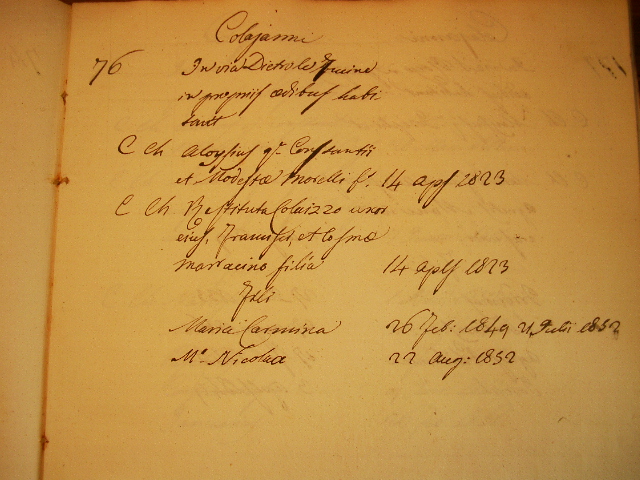 Colajanni
76 In via Dietro le Fucine
in propriis ædibus habi
tant
C Ch Aloysius q.m Constantii
et Modestæ Morelli f. 14 aprs 1823
C Ch Restituta Colaizzo uxor
ejus, Francisci, et Cosmæ
Marracino filia 14 aprs 1823
Filii
Maria Carmina 26 Feb: 1849 21 Julii 1852
Ma Nicolaa 22 Aug: 1852